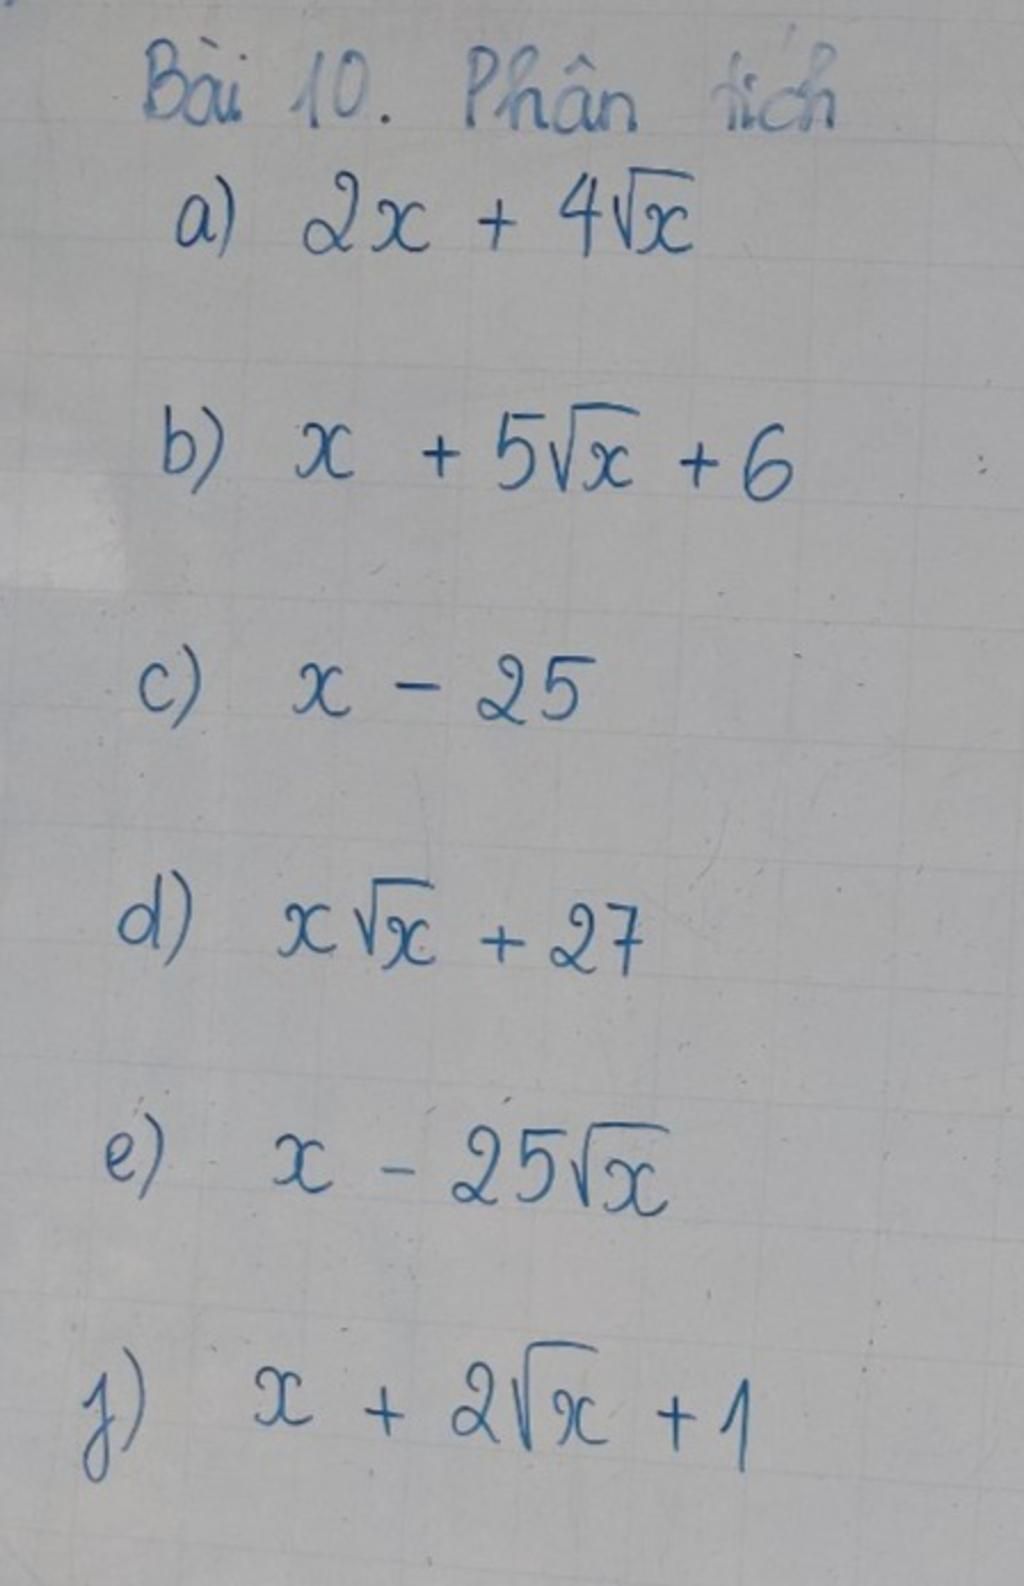 Bài 10. Phân tích
a) 2x + 4√x
b) x + 5√x + 6
c) x - 25
d) x√x + 27
e) x - 25√x
f) x + 2√x + 1